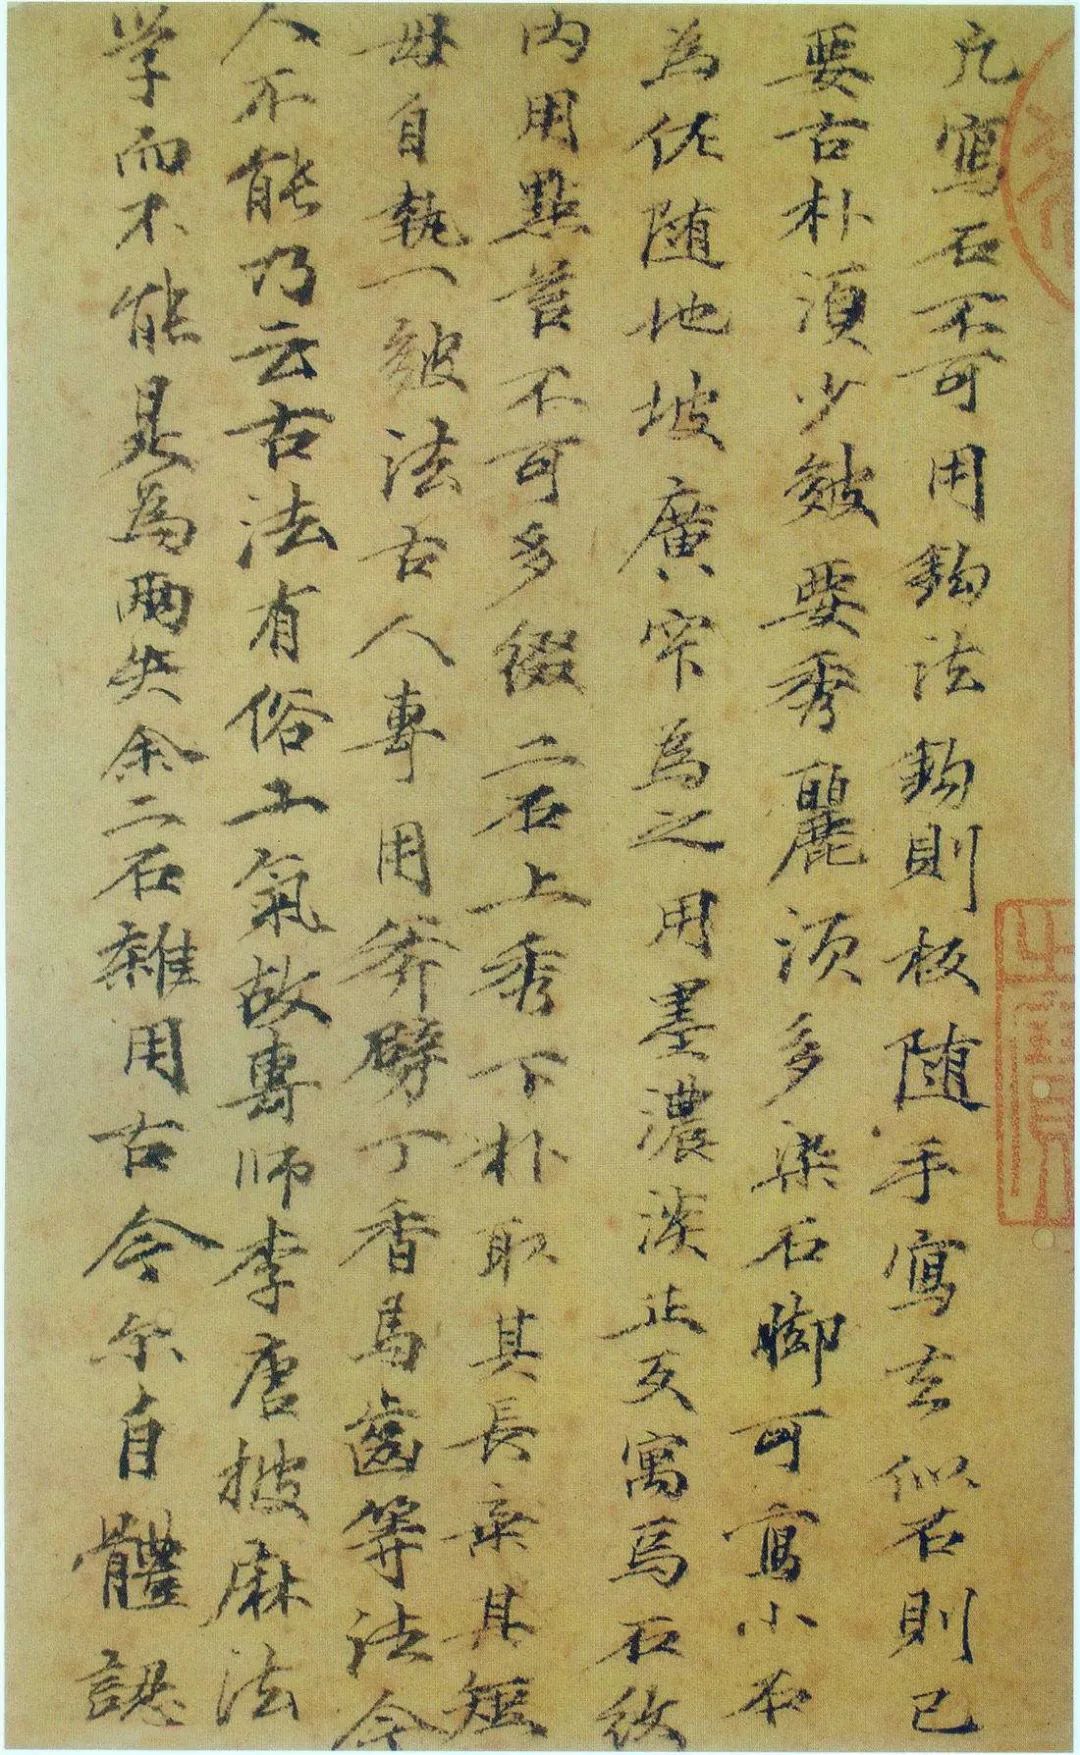 凢寫石不可用鈎法鈎則板隨手寫去似石則已
要古朴須少皴要秀麗須多染石脚可寫小石
為佐随地坡廣窄為之用墨濃淡止反寓焉石紋
内用點苔不可多綴二石上秀下朴取其長棄其短
毋自執一皴法古人專用斧劈丁香馬齒等法今
人不能乃云古法有俗工氣故專師李唐披麻法
学而不能是為兩失余二石雜用古今尔自體認